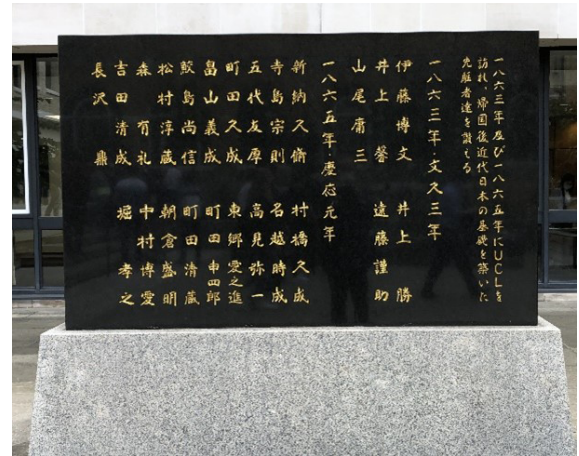 一八六三年及び一八六五年にUCLを
訪れ、帰国後近代日本の基礎を築いた
先駆者達を讃える
一八六三年・文久三年
伊藤博文 井上 勝
井上 馨 遠藤謹助
山尾庸三
一八六五年・慶応元年
新納久脩 村橋久成
寺島宗則 名越時成
五代友厚 高見弥一
町田久成 東郷愛之進
畠山義成 町田申四郎
鮫島尚信 町田清蔵
松村淳蔵 朝倉盛明
森 有礼 中村博愛
吉田清成 堀 孝之
長沢 鼎